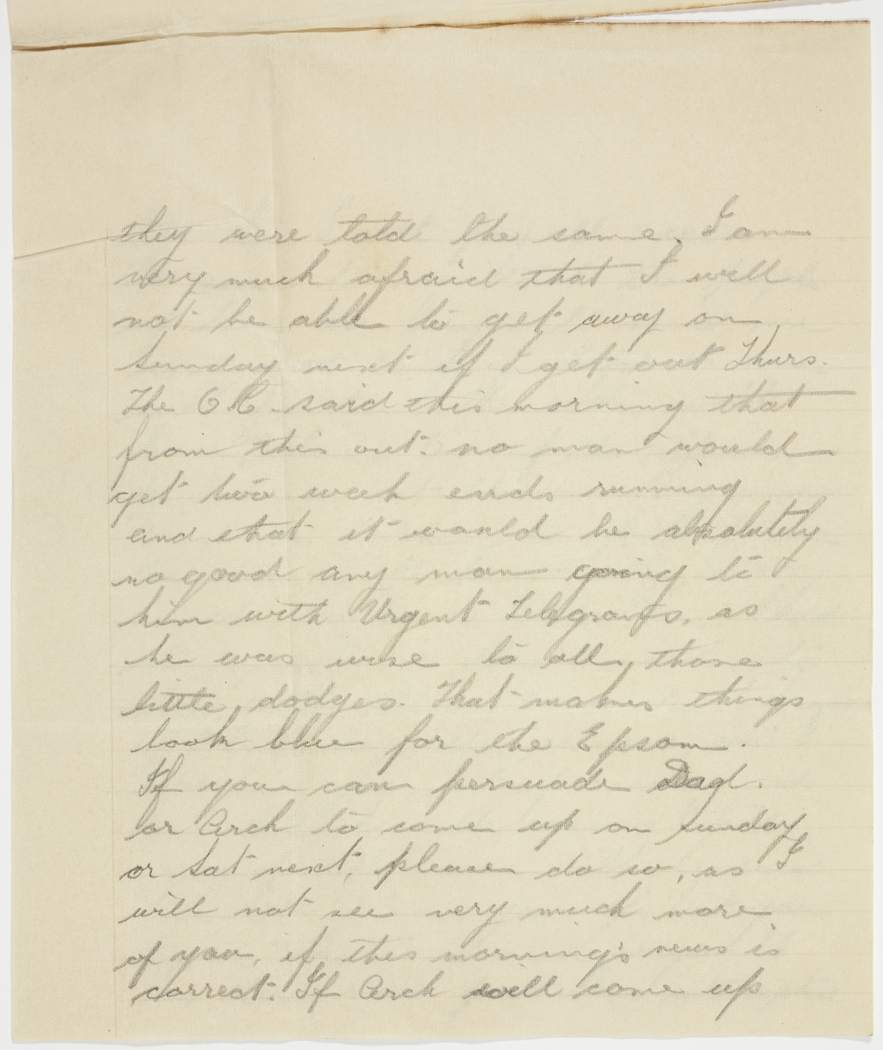 they were told the same. I am
very much afraid that I will
not be able to get away on
Sunday next if I get out Thurs.
The O C said this morning that
from this out. no man would
get two week ends running
and that it would be absolutely
no good any man going to
him with Urgent Telegrams, as
he was wise to all those
little dodges. That makes things
look blue for the Epsom.
If you can persuade Dad.
or Arch to come up on Sunday
or Sat next, please do so, as I
will not see very much more
of you, if this morning's news is
correct. If Arch will come up